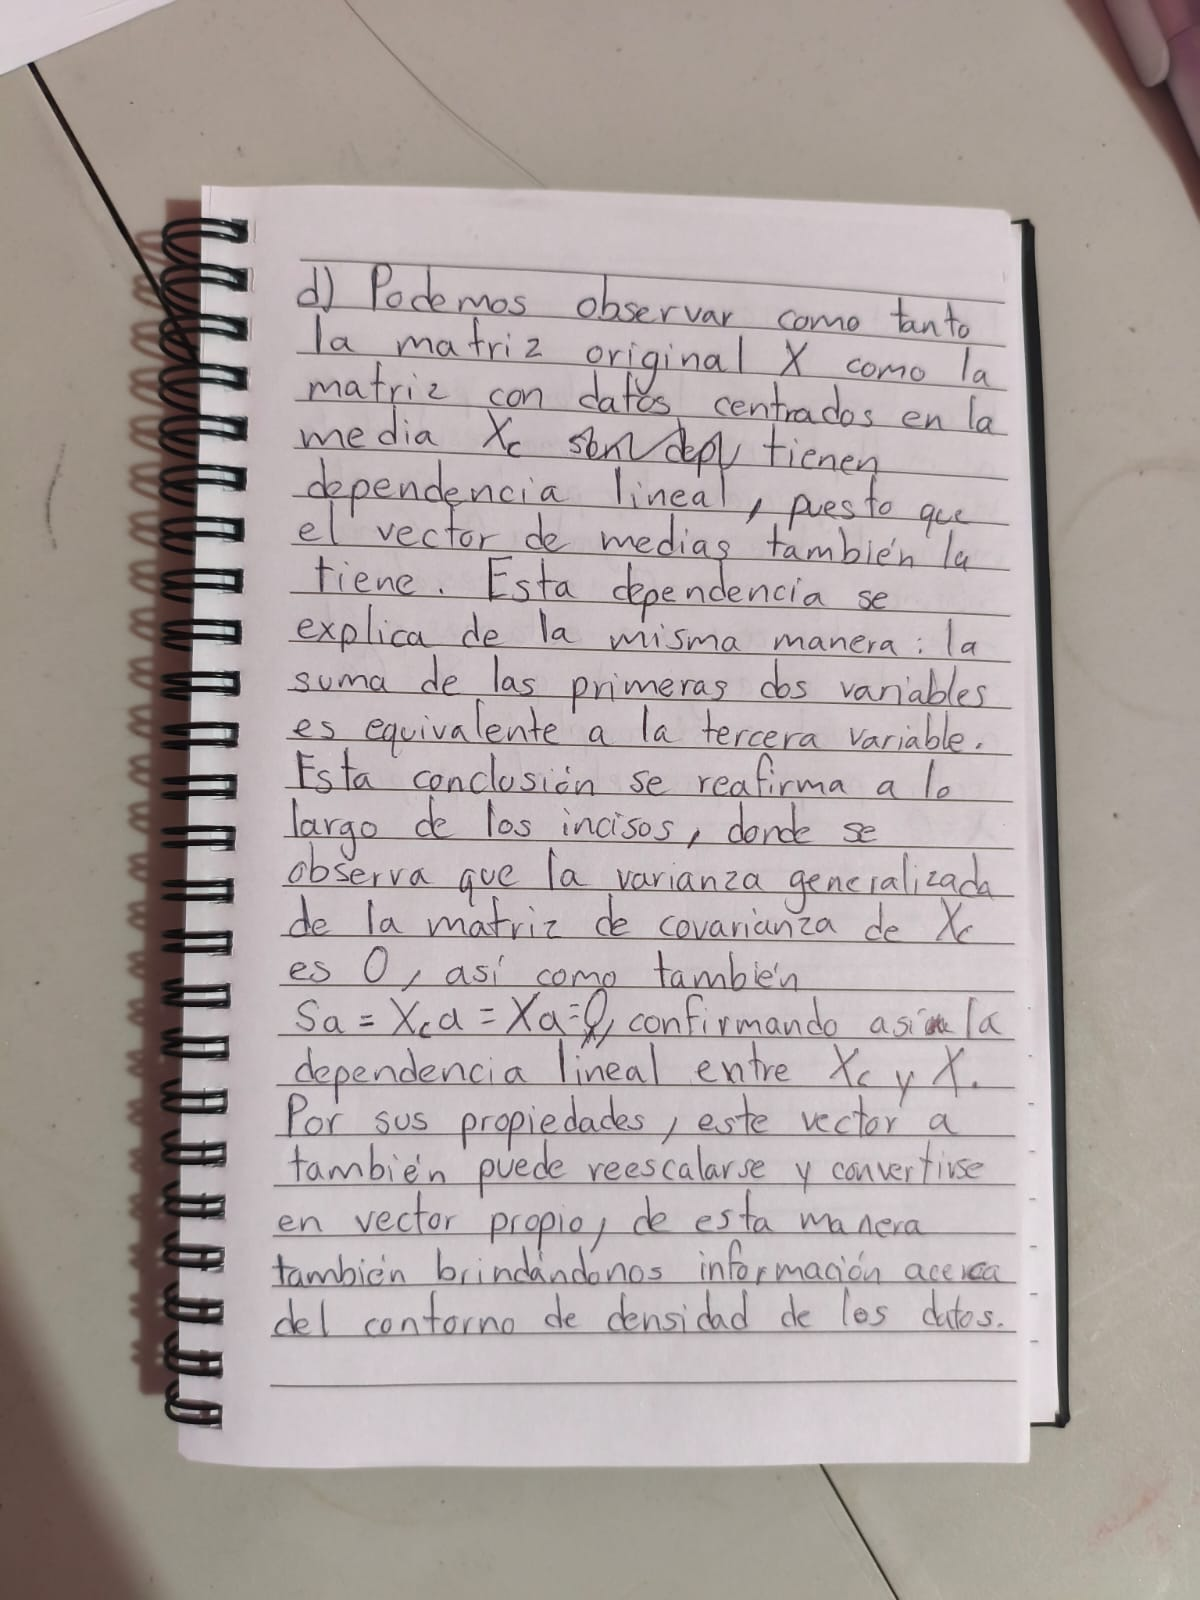 d) Podemos observar como tanto
la matriz original X como la
matriz con datos centrados en la
media Xc tienen
dependencia lineal, puesto que
el vector de medias también la
tiene. Esta dependencia se
explica de la misma manera: la
suma de las primeras dos variables
es equivalente a la tercera variable.
Esta conclusión se reafirma a lo
largo de los incisos, donde se
observa que la varianza generalizada
de la matriz de covarianza de Xc
es 0, así como también
Sa = Xca = Xa = 0, confirmando así la
dependencia lineal entre Xc y X.
Por sus propiedades, este vector a
también puede reescalarse y convertirse
en vector propio, de esta manera
también brindándonos información acerca
del contorno de densidad de los datos.